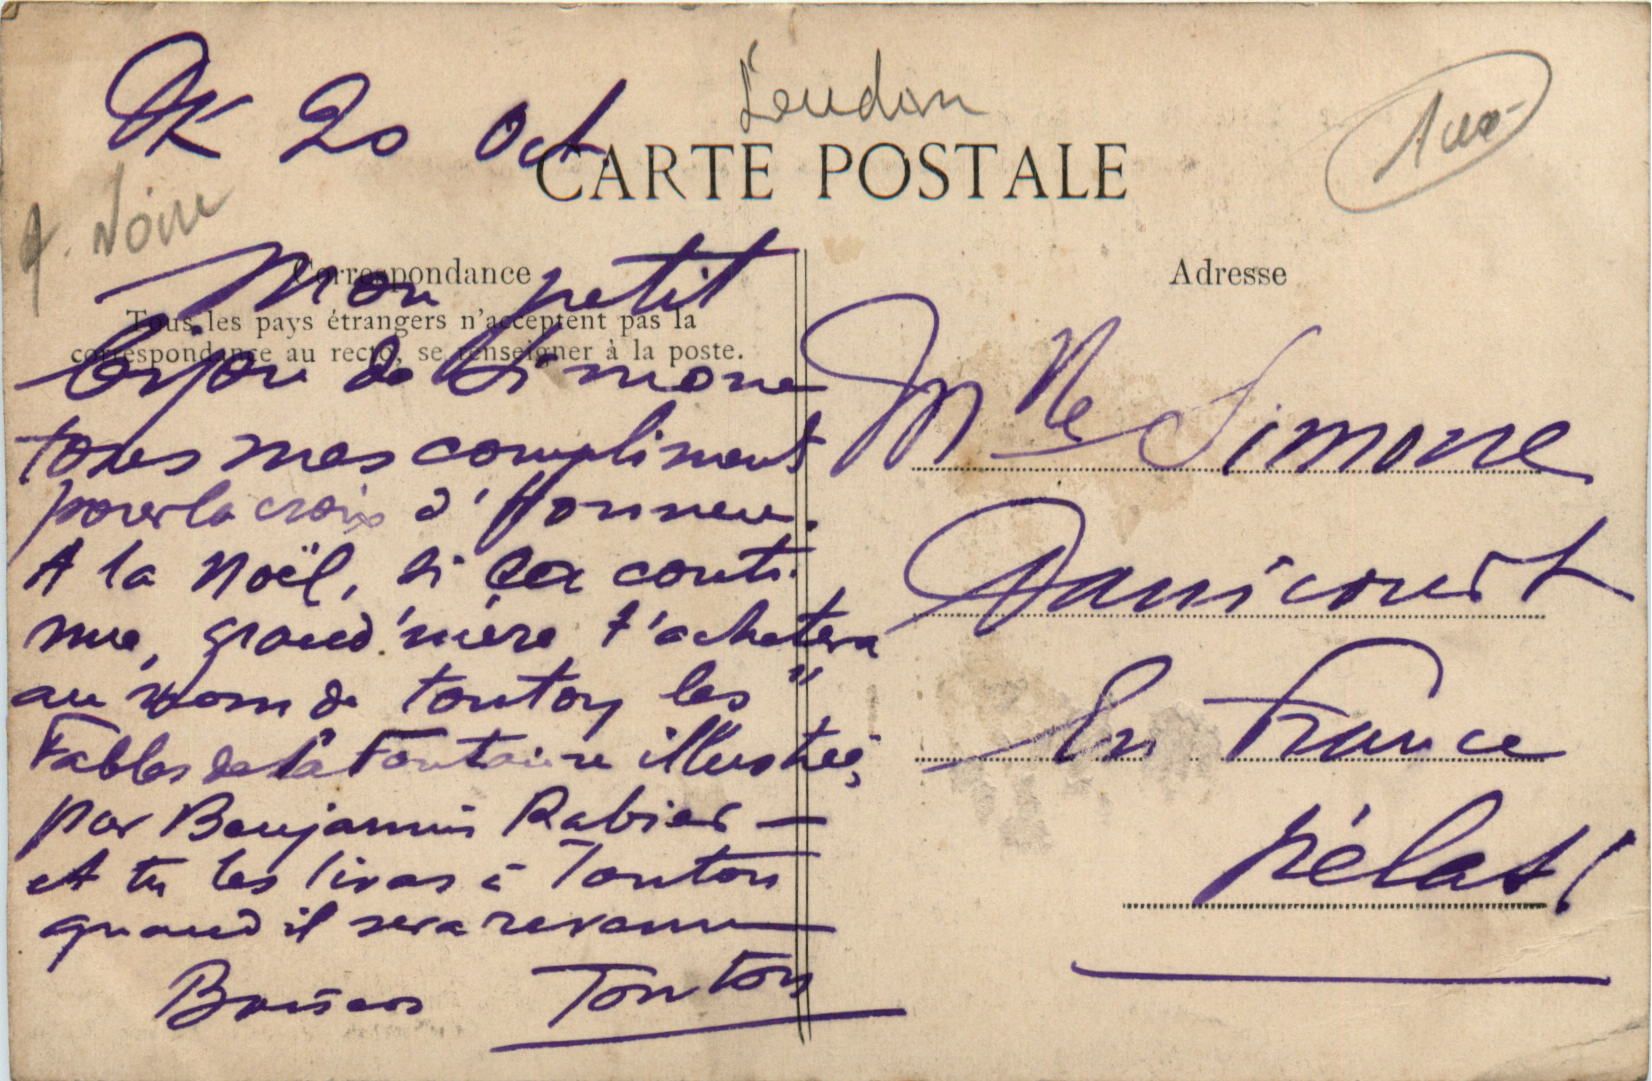 DK 20 Oct
CARTE POSTALE
Correspondance
Tous les pays étrangers n'acceptent pas la
correspondance au recto, se renseigner à la poste.
Mon petit
bijou de Simone
tous mes compliments
pour la croix d'Honneur.
A la Noël, si ça conti-
nue, grand'mère t'achetera
au nom de tonton les "
Fables de la Fontaine illustrées
par Benjamin Rabier —
et tu les liras à Tonton
quand il sera revenu
Baisers Tonton
Adresse
Mlle Simone
Danicourt
En France